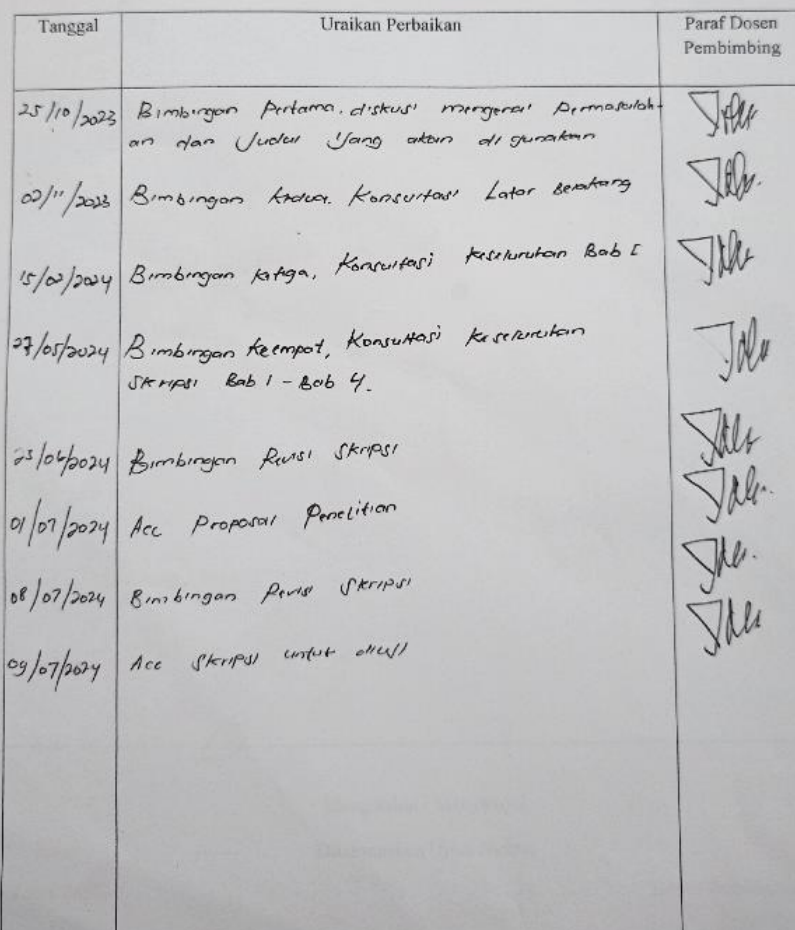 Tanggal Uraikan Perbaikan Paraf Dosen
Pembimbing
25/10/2023 Bimbingan Pertama. diskusi mengenai Permasalah-
an dan Judul Yang akan di gunakan
02/11/2023 Bimbingan kedua. Konsultasi Latar Belakang
15/02/2024 Bimbingan ketiga, Konsultasi keseluruhan Bab I
27/05/2024 Bimbingan keempat, Konsultasi keseluruhan
Skripsi Bab 1 - Bab 4.
25/06/2024 Bimbingan Revisi Skripsi
01/07/2024 Acc Proposal Penelitian
08/07/2024 Bimbingan Revisi Skripsi
09/07/2024 Acc Skripsi untuk diuji